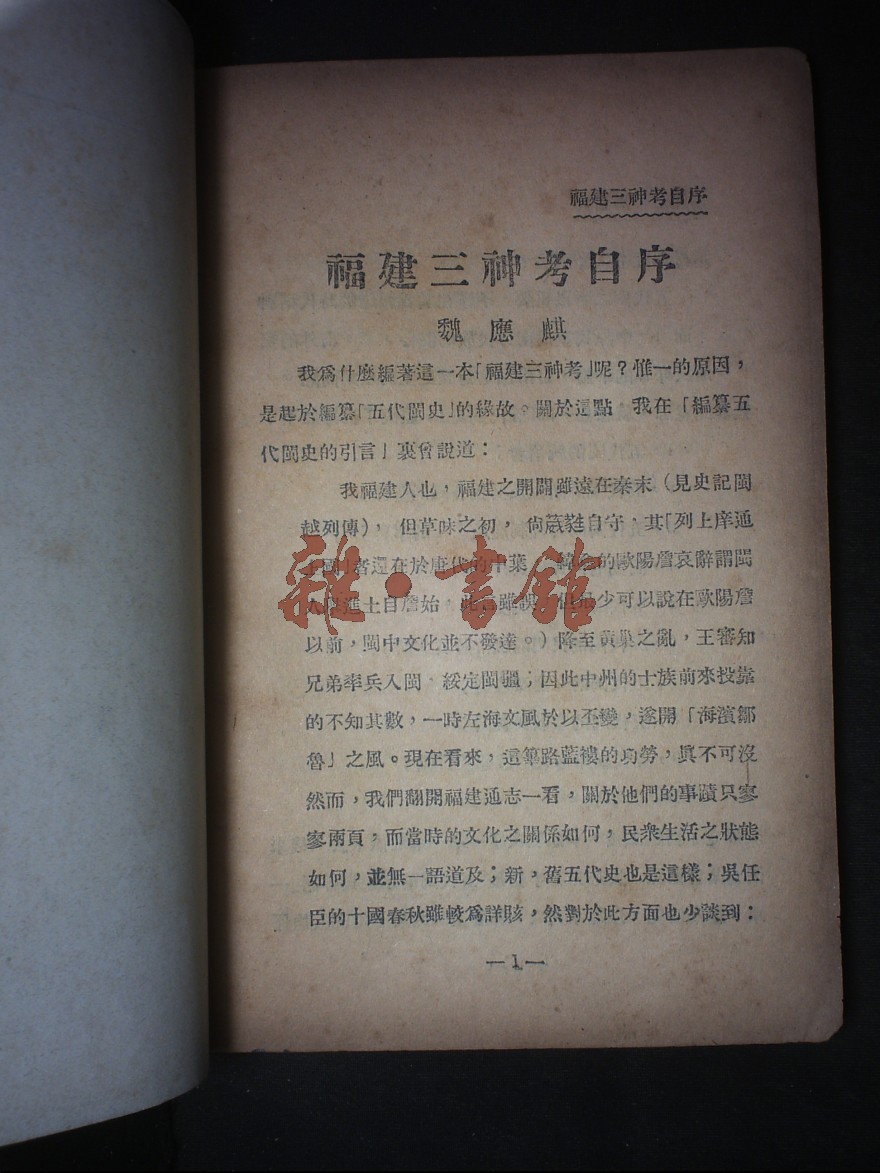 福建三神考自序
福建三神考自序
魏應麒
我爲什麼編著這一本「福建三神考」呢?惟一的原因,
是起於編纂「五代閩史」的緣故。關於這點 我在「編纂五
代閩史的引言」裏曾說道:
我福建人也,福建之開闢雖遠在秦末(見史記閩
越列傳),但草昧之初,尙蕆蕤自守,其「列上庠通
國」者還在於唐代的中葉 的歐陽詹哀辭謂閩
進士自詹始 此言雖誤 少可以說在歐陽詹
以前,閩中文化並不發達。)降至黃巢之亂,王審知
兄弟率兵入閩,綏定閩疆;因此中州的士族前來投靠
的不知其數,一時左海文風於以丕變,遂開「海濱鄒
魯」之風。現在看來,這篳路藍褸的功勞,眞不可沒
然而,我們翻開福建通志一看,關於他們的事蹟只寥
寥兩頁,而當時的文化之關係如何,民衆生活之狀態
如何,並無一語道及;新,舊五代史也是這樣;吳任
臣的十國春秋雖較爲詳賅,然對於此方面也少談到:
—1—
雜·書館